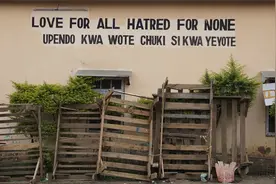 LOVE FOR ALL HATRED FOR NONE
UPENDO KWA WOTE CHUKI SI KWA YEYOTE